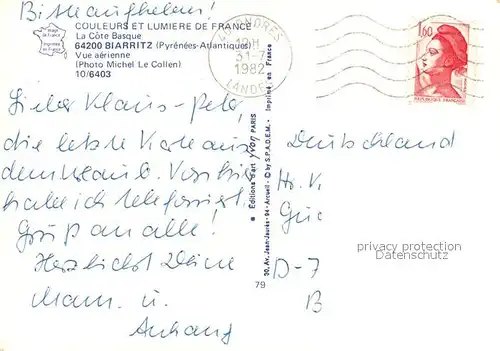 Bitte aufheben!
COULEURS ET LUMIERE DE FRANCE
La Côte Basque
64200 BIARRITZ (Pyrénées-Atlantiques)
Vue aérienne
(Photo Michel Le Collen)
10/6403
image de France
imprimée en France
40 ONDRES
19H
31-7
1982
LANDES
1,60
REPUBLIQUE FRANÇAISE
Lieber Klaus-Peter,
die letzte Karte aus
dem Urlaub. Vorhin
habe ich telefoniert.
Gruß an alle!
Herzlichst Deine
Mam. u.
Anhang
Editions d'art yvon PARIS
30, Av. Jean-Jaurès - 94 - Arcueil - © by S.P.A.D.E.M. - Imprimé en France
79
Deutschland
Hr. K
D-7
B
privacy protection
Datenschutz